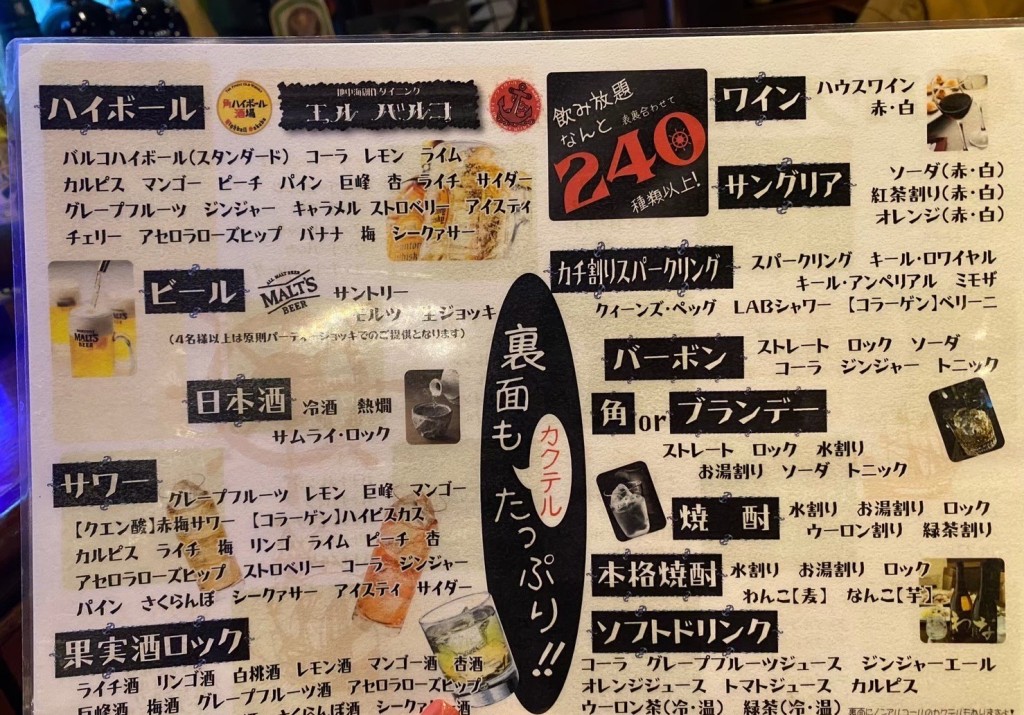 ハイボール
角ハイボール
酒場
地中海創作ダイニング
エル バルコ
バルコハイボール(スタンダード) コーラ レモン ライム
カルピス マンゴー ピーチ パイン 巨峰 杏 ライチ サイダー
グレープフルーツ ジンジャー キャラメル ストロベリー アイスティ
チェリー アセロラローズヒップ バナナ 梅 シークァサー
ビール
ALL MALT BEER
MALT'S
BEER
サントリー
モルツ 生ジョッキ
(4名様以上は原則パーティージョッキでのご提供となります)
日本酒 冷酒 熱燗
サムライ・ロック
サワー
グレープフルーツ レモン 巨峰 マンゴー
【クエン酸】赤梅サワー 【コラーゲン】ハイビスカス
カルピス ライチ 梅 リンゴ ライム ピーチ 杏
アセロラローズヒップ ストロベリー コーラ ジンジャー
パイン さくらんぼ シークァサー アイスティ サイダー
果実酒ロック
ライチ酒 リンゴ酒 白桃酒 レモン酒 マンゴー酒 杏酒
巨峰酒 梅酒 グレープフルーツ酒 アセロラローズヒップ
さくらんぼ酒 シークァサー
裏面も
カクテル
たっぷり!!
飲み放題
なんと 表裏合わせて
240
種類以上!
ワイン
ハウスワイン
赤・白
サングリア
ソーダ(赤・白)
紅茶割り(赤・白)
オレンジ(赤・白)
カチ割りスパークリング
スパークリング キール・ロワイヤル
キール・アンペリアル ミモザ
クィーンズ・ペッグ LABシャワー 【コラーゲン】ベリーニ
バーボン
ストレート ロック ソーダ
コーラ ジンジャー トニック
角 or ブランデー
ストレート ロック 水割り
お湯割り ソーダ トニック
焼 酎
水割り お湯割り ロック
ウーロン割り 緑茶割り
本格焼酎
水割り お湯割り ロック
わんこ【麦】 なんこ【芋】
ソフトドリンク
コーラ グレープフルーツジュース ジンジャーエール
オレンジジュース トマトジュース カルピス
ウーロン茶(冷・温) 緑茶(冷・温)